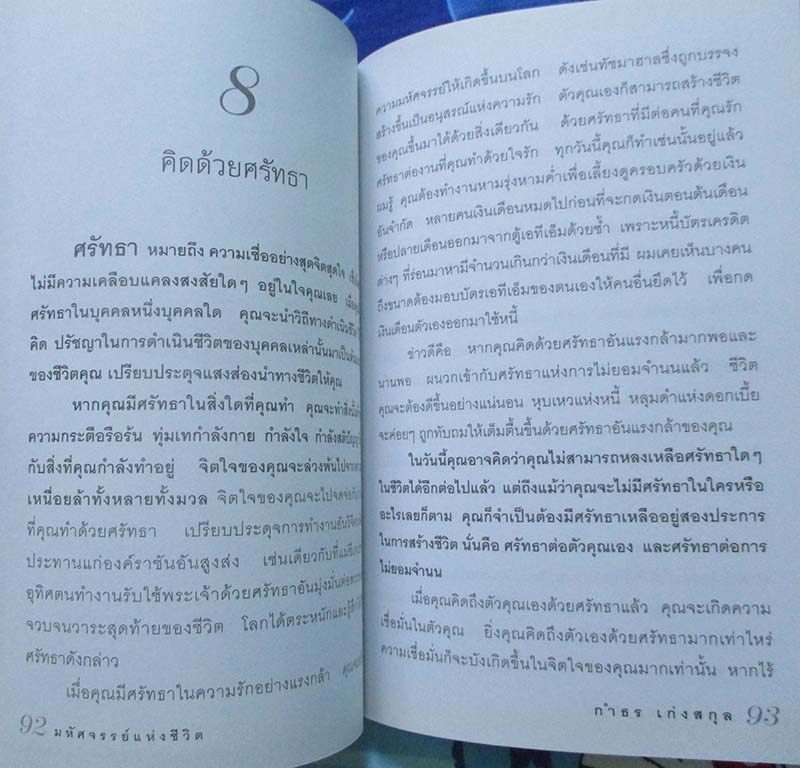 8
คิดด้วยศรัทธา
ศรัทธา หมายถึง ความเชื่ออย่างสุดจิตสุดใจ
ไม่มีความเคลือบแคลงสงสัยใดๆ อยู่ในใจคุณเลย
ศรัทธาในบุคคลหนึ่งบุคคลใด คุณจะนำวิถีทางดำเนินชีวิต
คิด ปรัชญาในการดำเนินชีวิตของบุคคลเหล่านั้นมาเป็น
ของชีวิตคุณ เปรียบประดุจแสงส่องนำทางชีวิตให้คุณ
หากคุณมีศรัทธาในสิ่งใดที่คุณทำ คุณจะทำสิ่งนั้น
ความกระตือรือร้น ทุ่มเทกำลังกาย กำลังใจ
กับสิ่งที่คุณกำลังทำอยู่ จิตใจของคุณจะล่วงพ้นไปจาก
เหนื่อยล้าทั้งหลายทั้งมวล จิตใจของคุณจะไปจดจ่อ
ที่คุณทำด้วยศรัทธา เปรียบประดุจการทำงานอัน
ประทานแก่องค์ราชันอันสูงส่ง เช่นเดียวกับที่
อุทิศตนทำงานรับใช้พระเจ้าด้วยศรัทธาอันมุ่งมั่น
จวบจนวาระสุดท้ายของชีวิต โลกได้ตระหนักและรู้
ศรัทธาดังกล่าว
เมื่อคุณมีศรัทธาในความรักอย่างแรงกล้า
92 มหัศจรรย์แห่งชีวิต
ความมหัศจรรย์ให้เกิดขึ้นบนโลก ดังเช่นทัชมาฮาลซึ่งถูกบรรจง
สร้างขึ้นเป็นอนุสรณ์แห่งความรัก ตัวคุณเองก็สามารถสร้างชีวิต
ของคุณขึ้นมาได้ด้วยสิ่งเดียวกัน ด้วยศรัทธาที่มีต่อคนที่คุณรัก
ศรัทธาต่องานที่คุณทำด้วยใจรัก ทุกวันนี้คุณก็ทำเช่นนั้นอยู่แล้ว
ผมรู้ คุณต้องทำงานหามรุ่งหามค่ำเพื่อเลี้ยงดูครอบครัวด้วยเงิน
อันจำกัด หลายคนเงินเดือนหมดไปก่อนที่จะกดเงินตอนต้นเดือน
หรือปลายเดือนออกมาจากตู้เอทีเอ็มด้วยซ้ำ เพราะหนี้บัตรเครดิต
ต่างๆ ที่ร่อนมาหามีจำนวนเกินกว่าเงินเดือนที่มี ผมเคยเห็นบางคน
ถึงขนาดต้องมอบบัตรเอทีเอ็มของตนเองให้คนอื่นยึดไว้ เพื่อกด
เงินเดือนตัวเองออกมาใช้หนี้
ข่าวดีคือ หากคุณคิดด้วยศรัทธาอันแรงกล้ามากพอและ
นานพอ ผนวกเข้ากับศรัทธาแห่งการไม่ยอมจำนนแล้ว ชีวิต
คุณจะต้องดีขึ้นอย่างแน่นอน หุบเหวแห่งหนี้ หลุมดำแห่งดอกเบี้ย
จะค่อยๆ ถูกทับถมให้เต็มตื้นขึ้นด้วยศรัทธาอันแรงกล้าของคุณ
ในวันนี้คุณอาจคิดว่าคุณไม่สามารถหลงเหลือศรัทธาใดๆ
ในชีวิตได้อีกต่อไปแล้ว แต่ถึงแม้ว่าคุณจะไม่มีศรัทธาในใครหรือ
อะไรเลยก็ตาม คุณก็จำเป็นต้องมีศรัทธาเหลืออยู่สองประการ
ในการสร้างชีวิต นั่นคือ ศรัทธาต่อตัวคุณเอง และศรัทธาต่อการ
ไม่ยอมจำนน
เมื่อคุณคิดถึงตัวคุณเองด้วยศรัทธาแล้ว คุณจะเกิดความ
เชื่อมั่นในตัวคุณ ยิ่งคุณคิดถึงตัวเองด้วยศรัทธามากเท่าไหร่
ความเชื่อมั่นก็จะบังเกิดขึ้นในจิตใจของคุณมากเท่านั้น หากไร้
กำธร เก่งสกุล 93